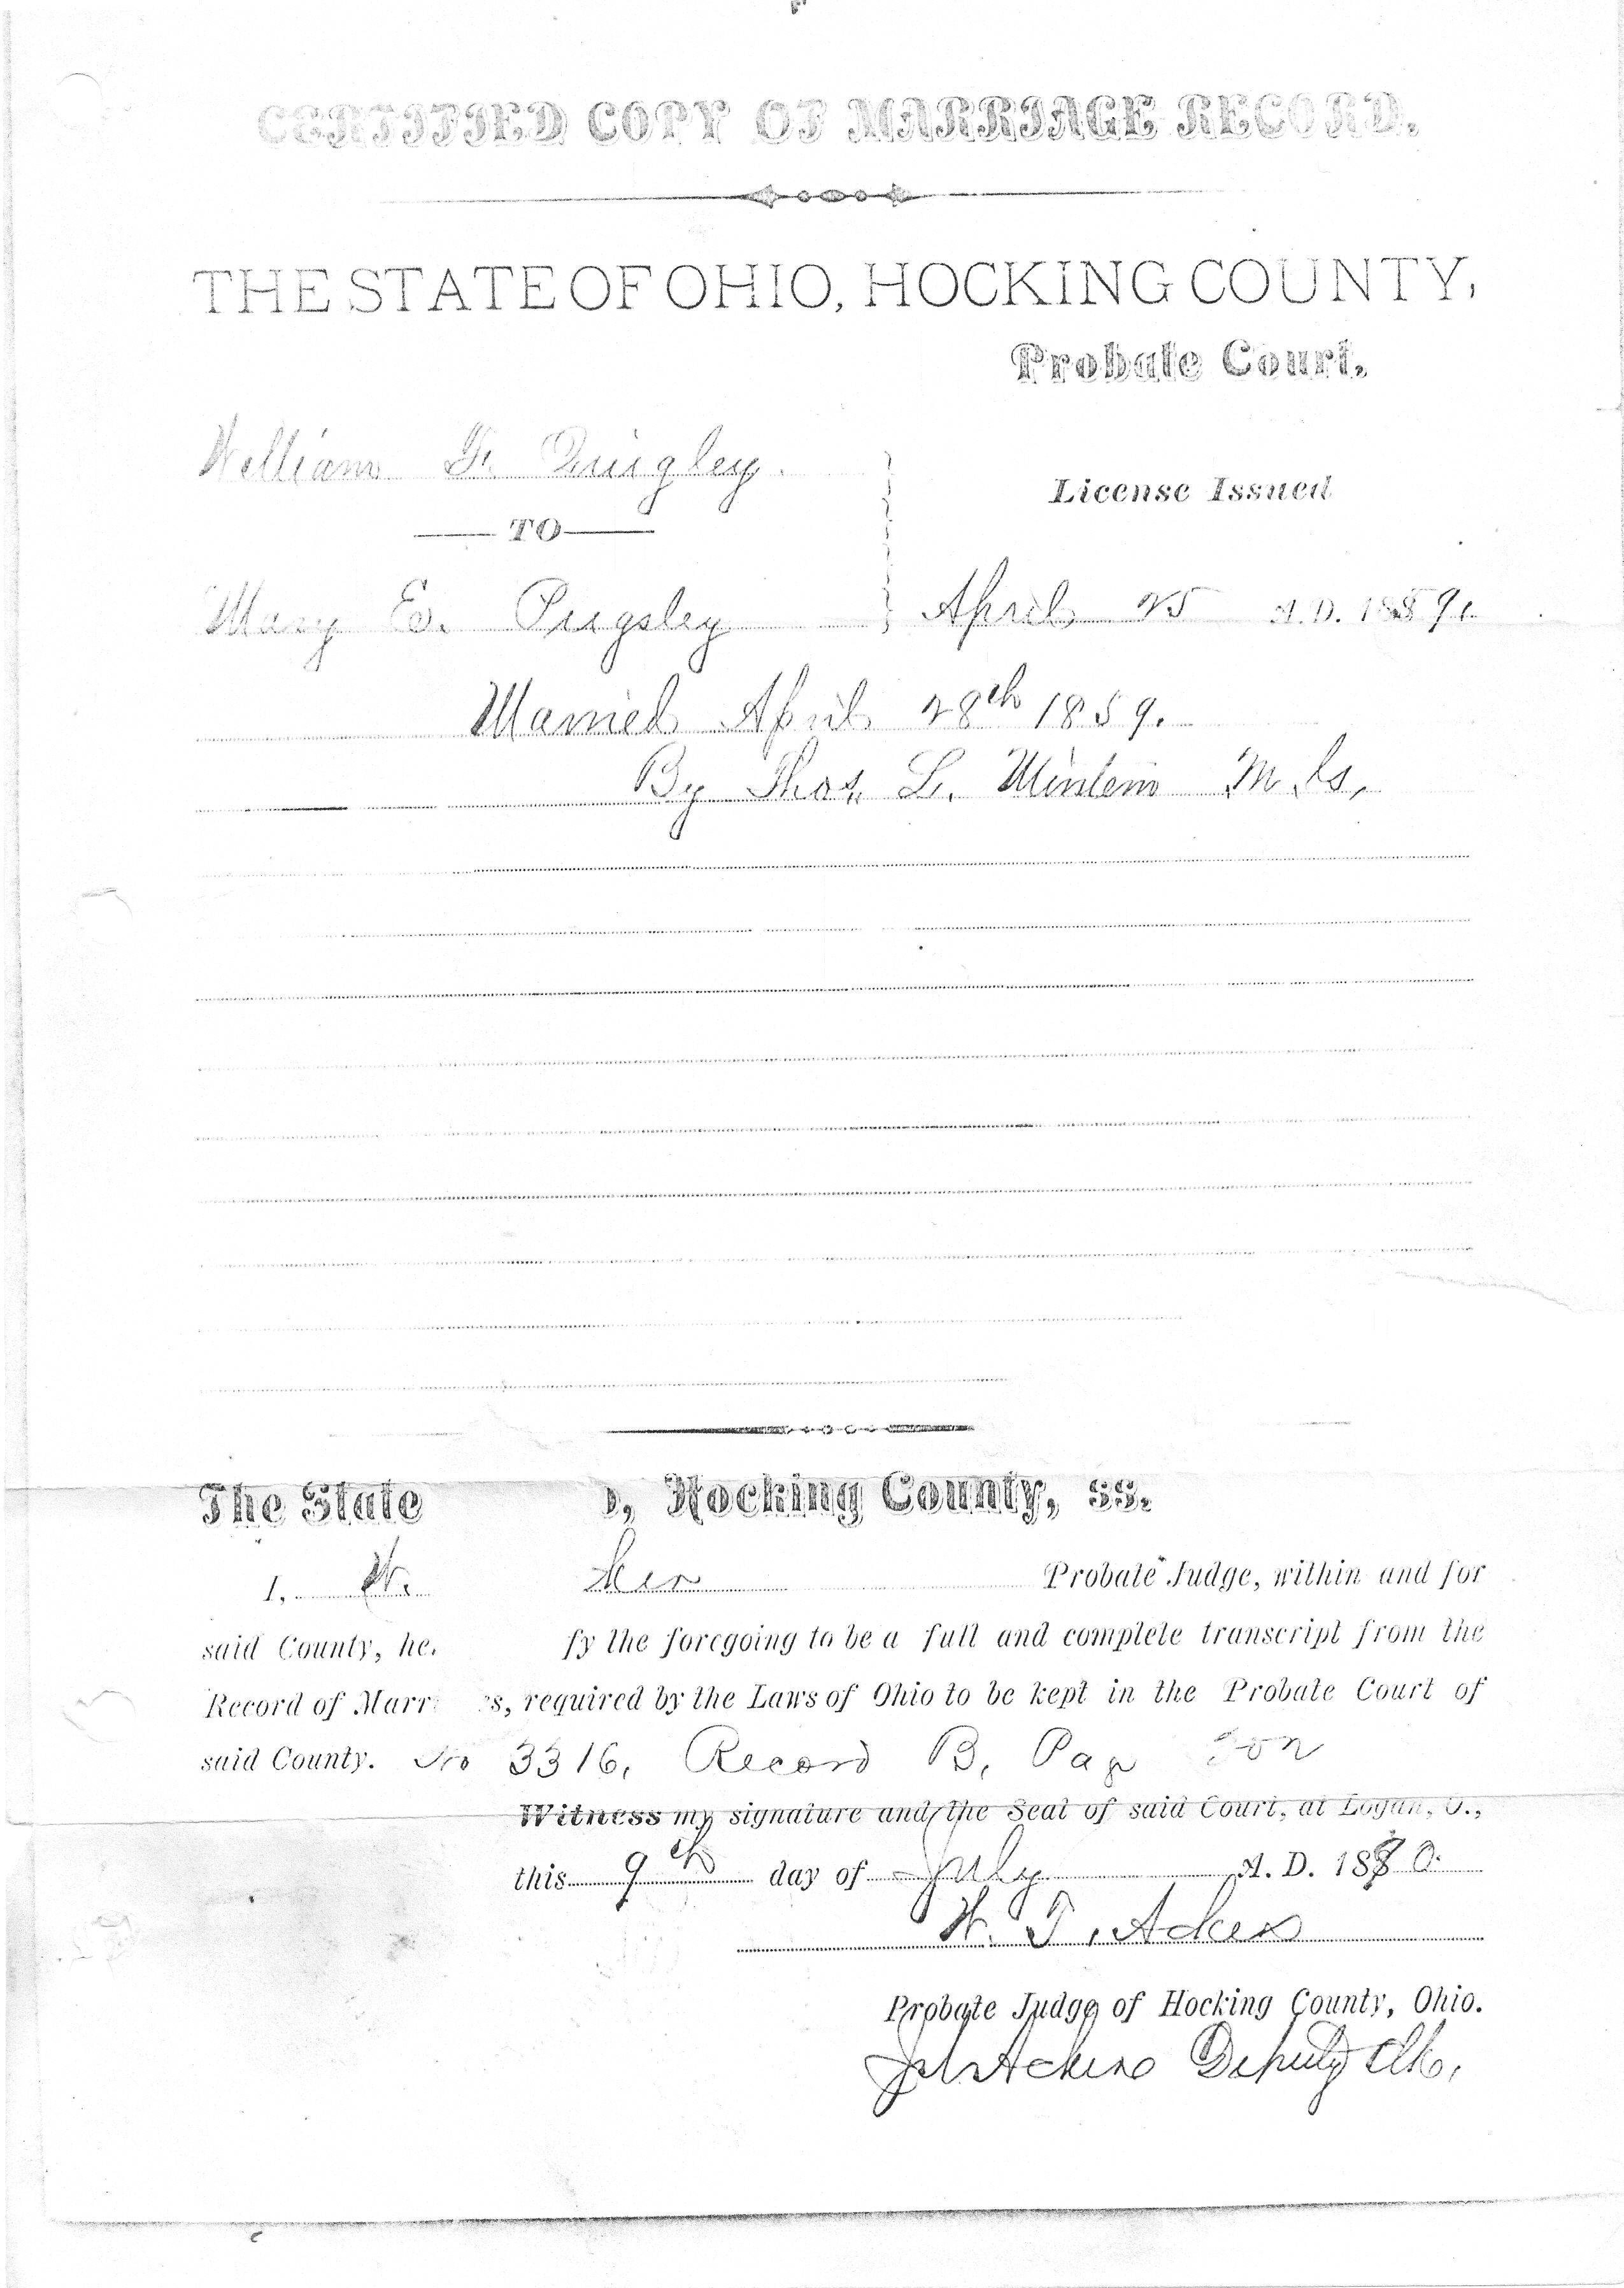 CERTIFIED COPY OF MARRIAGE RECORD.
THE STATE OF OHIO, HOCKING COUNTY,
Probate Court.
William Quigley.
License Issued
TO
Mary E. Pugsley
April 25 A.D. 1859.
Married April 28th 1859.
By Thos. L.
The State , Hocking County, ss.
I, W. Probate Judge, within and for
said County, he fy the foregoing to be a full and complete transcript from the
Record of Marr s, required by the Laws of Ohio to be kept in the Probate Court of
said County. No 3316, Record B, Pag
Witness my signature and the Seal of said Court, at Logan, O.,
this 9th day of July A. D. 1890.
W. T. Acker
Probate Judge of Hocking County, Ohio.
Deputy Clk.